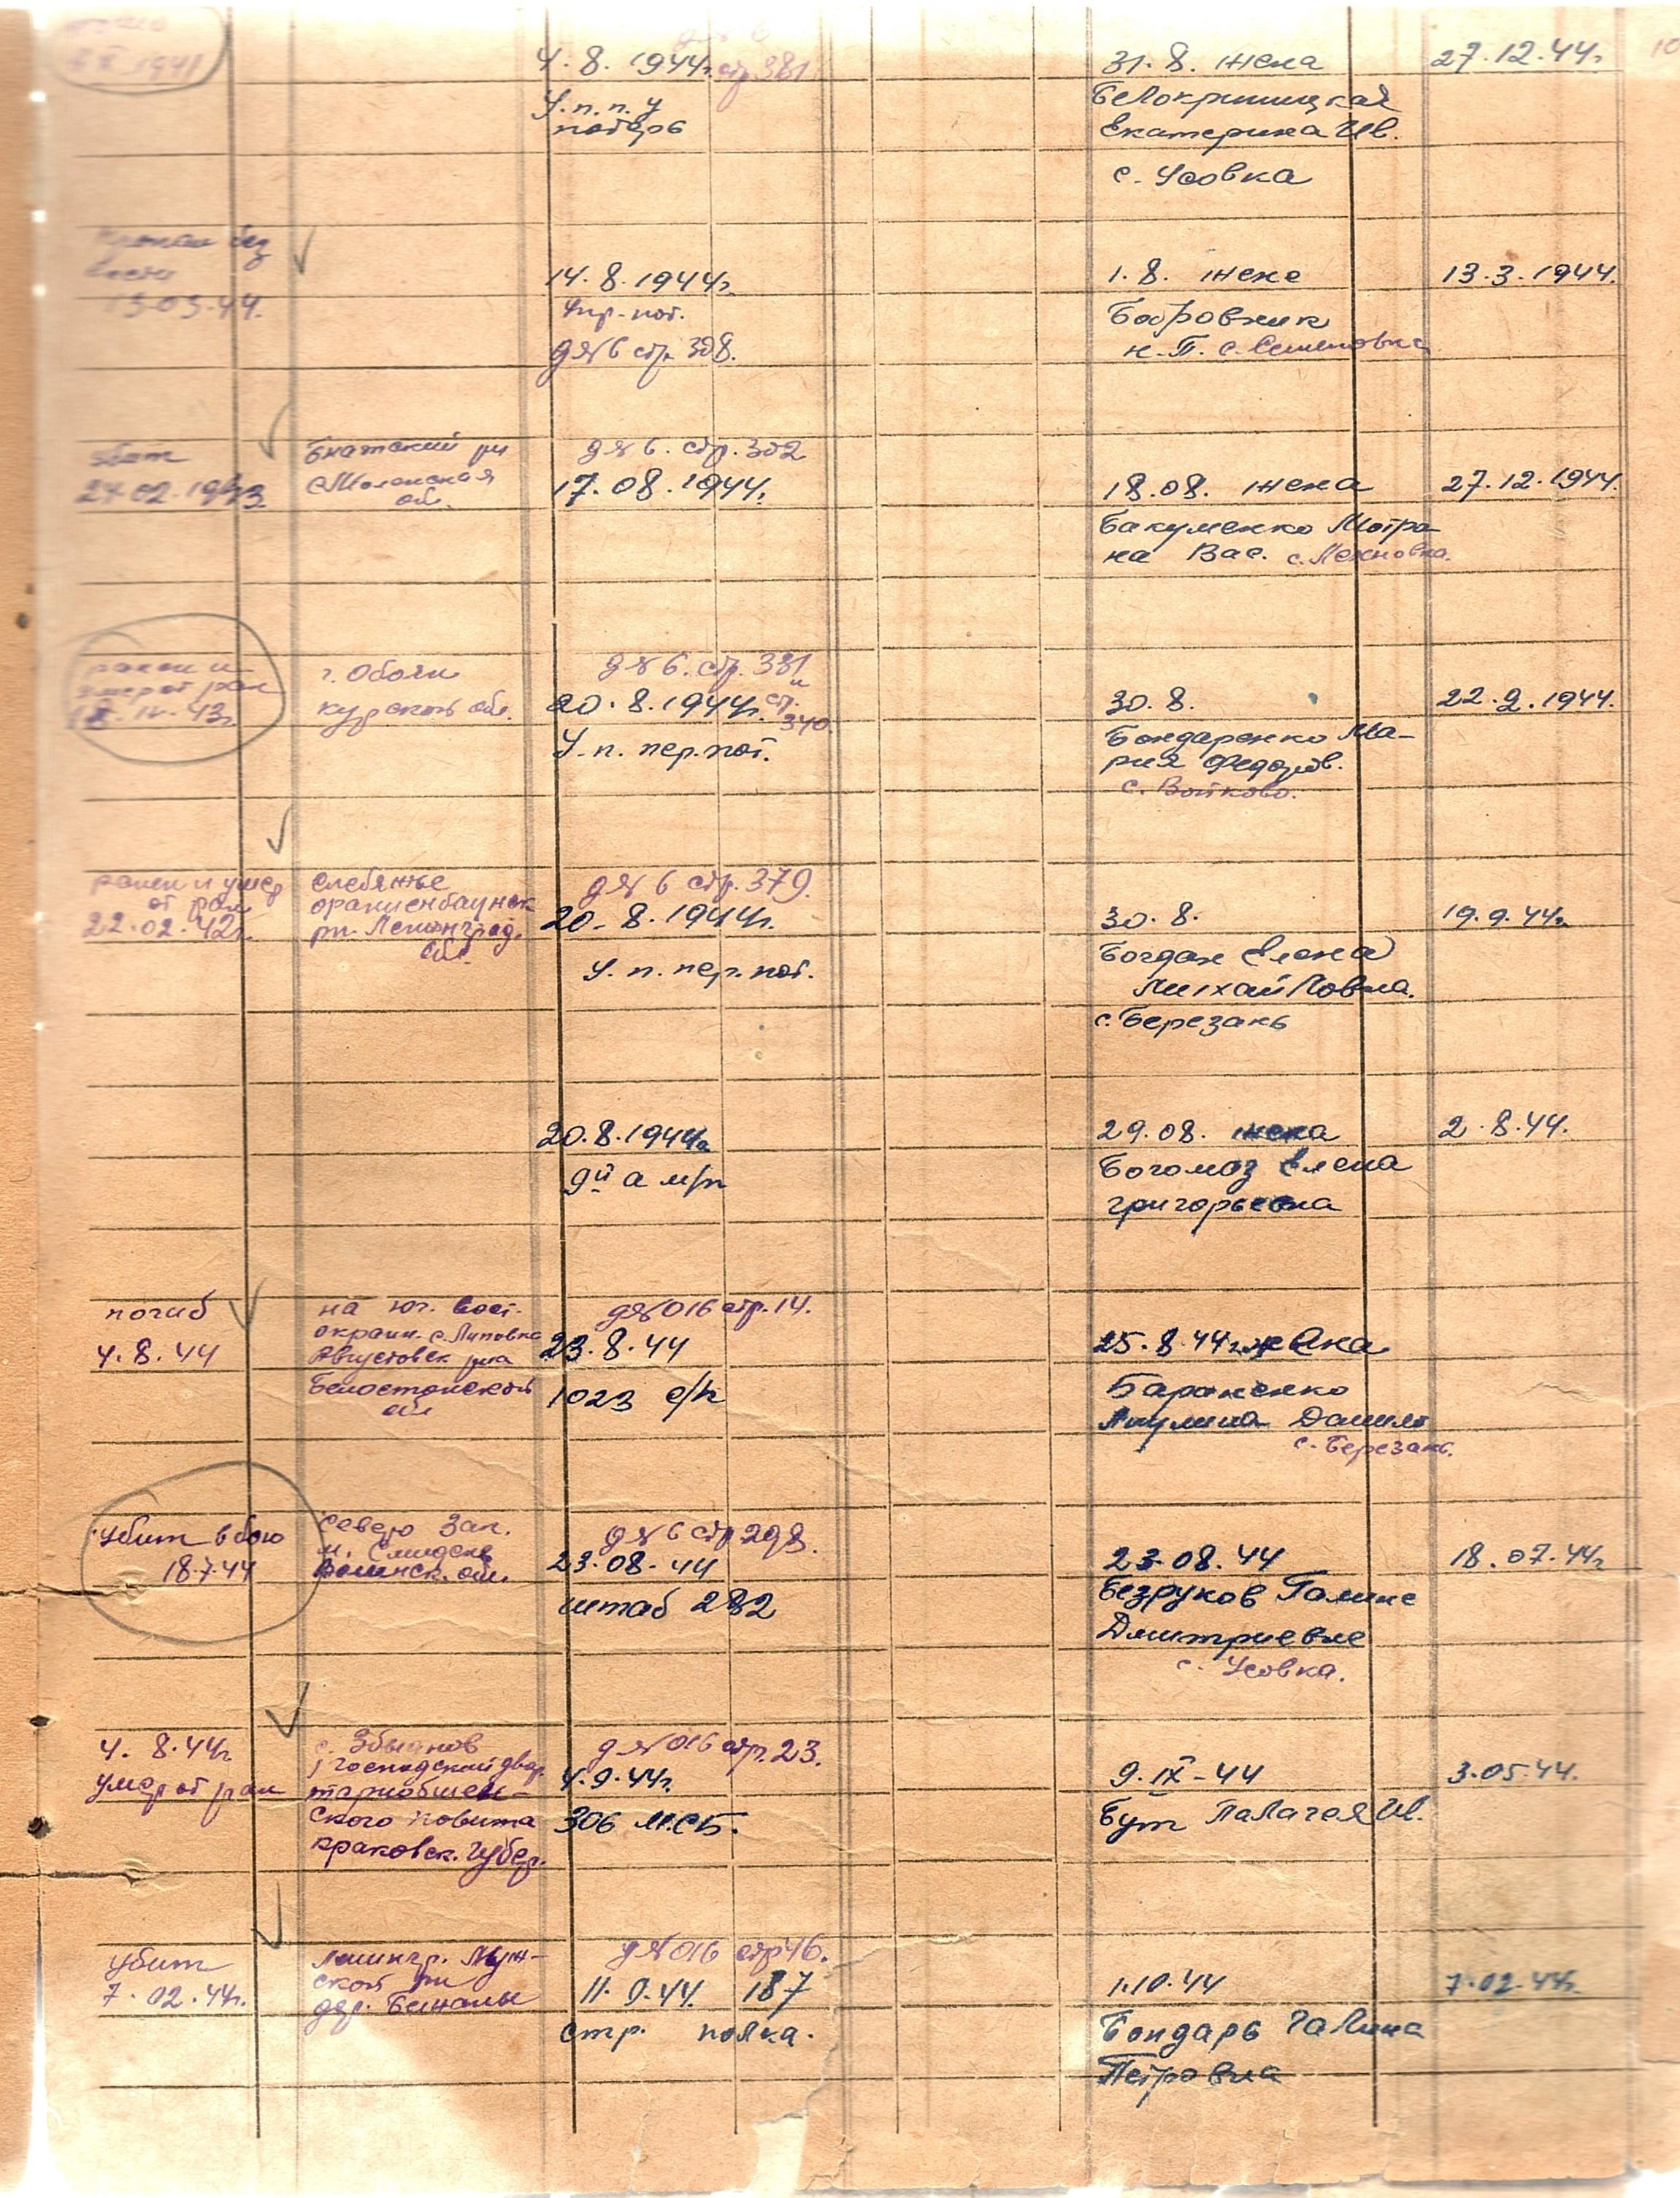 4. 8. 1944г. стр. 381
У. п. п. у
потерь
31. 8. жена
Белокриницкая
Екатерина Ив.
с. Усовка
27. 12. 44г.
Пропал без
вести
14. 8. 1944г.
Упр. пот.
д № 6 стр. 308.
1. 8. жене
Бобровник
н. П. с. Семеновка
13. 3. 1944.
убит
24. 02. 1943
р-н
Смоленская
обл.
д № 6. стр. 302
17. 08. 1944г.
18. 08. жена
Бакуменко Мотро-
на Вас. с. Лехновка.
27. 12. 1944.
ранен и
умер от ран
г. Обоян
курской обл.
д № 6. стр. 381
и
20. 8. 1944г. ст.
340.
У. п. пер. пот.
30. 8.
Бондаренко Ма-
рия Федоров.
с. Войково.
22. 9. 1944.
ранен и умер
от ран
22. 02. 42г.
ораниенбаумск
рн. Ленинград.
обл.
д № 6 стр. 379.
20. 8. 1944г.
У. п. пер. пот.
30. 8.
Богдан Елена
Михайловна.
с. Березань
19. 9. 44г.
20. 8. 1944г.
9й а м/п
29. 08. жена
Богомаз Елена
григорьевна
2. 8. 44.
погиб
4. 8. 44
на юг. вост.
окраин. с. Липовка
Августовск р-на
Белостокской
обл
д № 016 стр. 14.
23. 8. 44
1023 с/п
25. 8. 44г. жена
Бароненко
Акулина Данил
с. Березань.
убит в бою
18.7.44
северо зап.
обл.
д № 6 стр 298.
23. 08. 44
штаб 282
23. 08. 44
Безруков Галине
Дмитриевне
с. Усовка.
18. 07. 44г
4. 8. 44г.
умер от ран
с. Збыднов
господский двор
тарнобжен-
ского повита
краковск. губер.
д № 016 стр. 23.
4. 9. 44г.
306 МСБ.
9. IX - 44
Бут Палагея Ив.
3. 05. 44.
убит
7. 02. 44г.
Ленингр. Луж-
ской р-н
дер.
д № 016 стр 46.
11. 9. 44. 187
стр. полка.
1. 10. 44
Бондарь Галина
Петровна
7. 02. 44г.